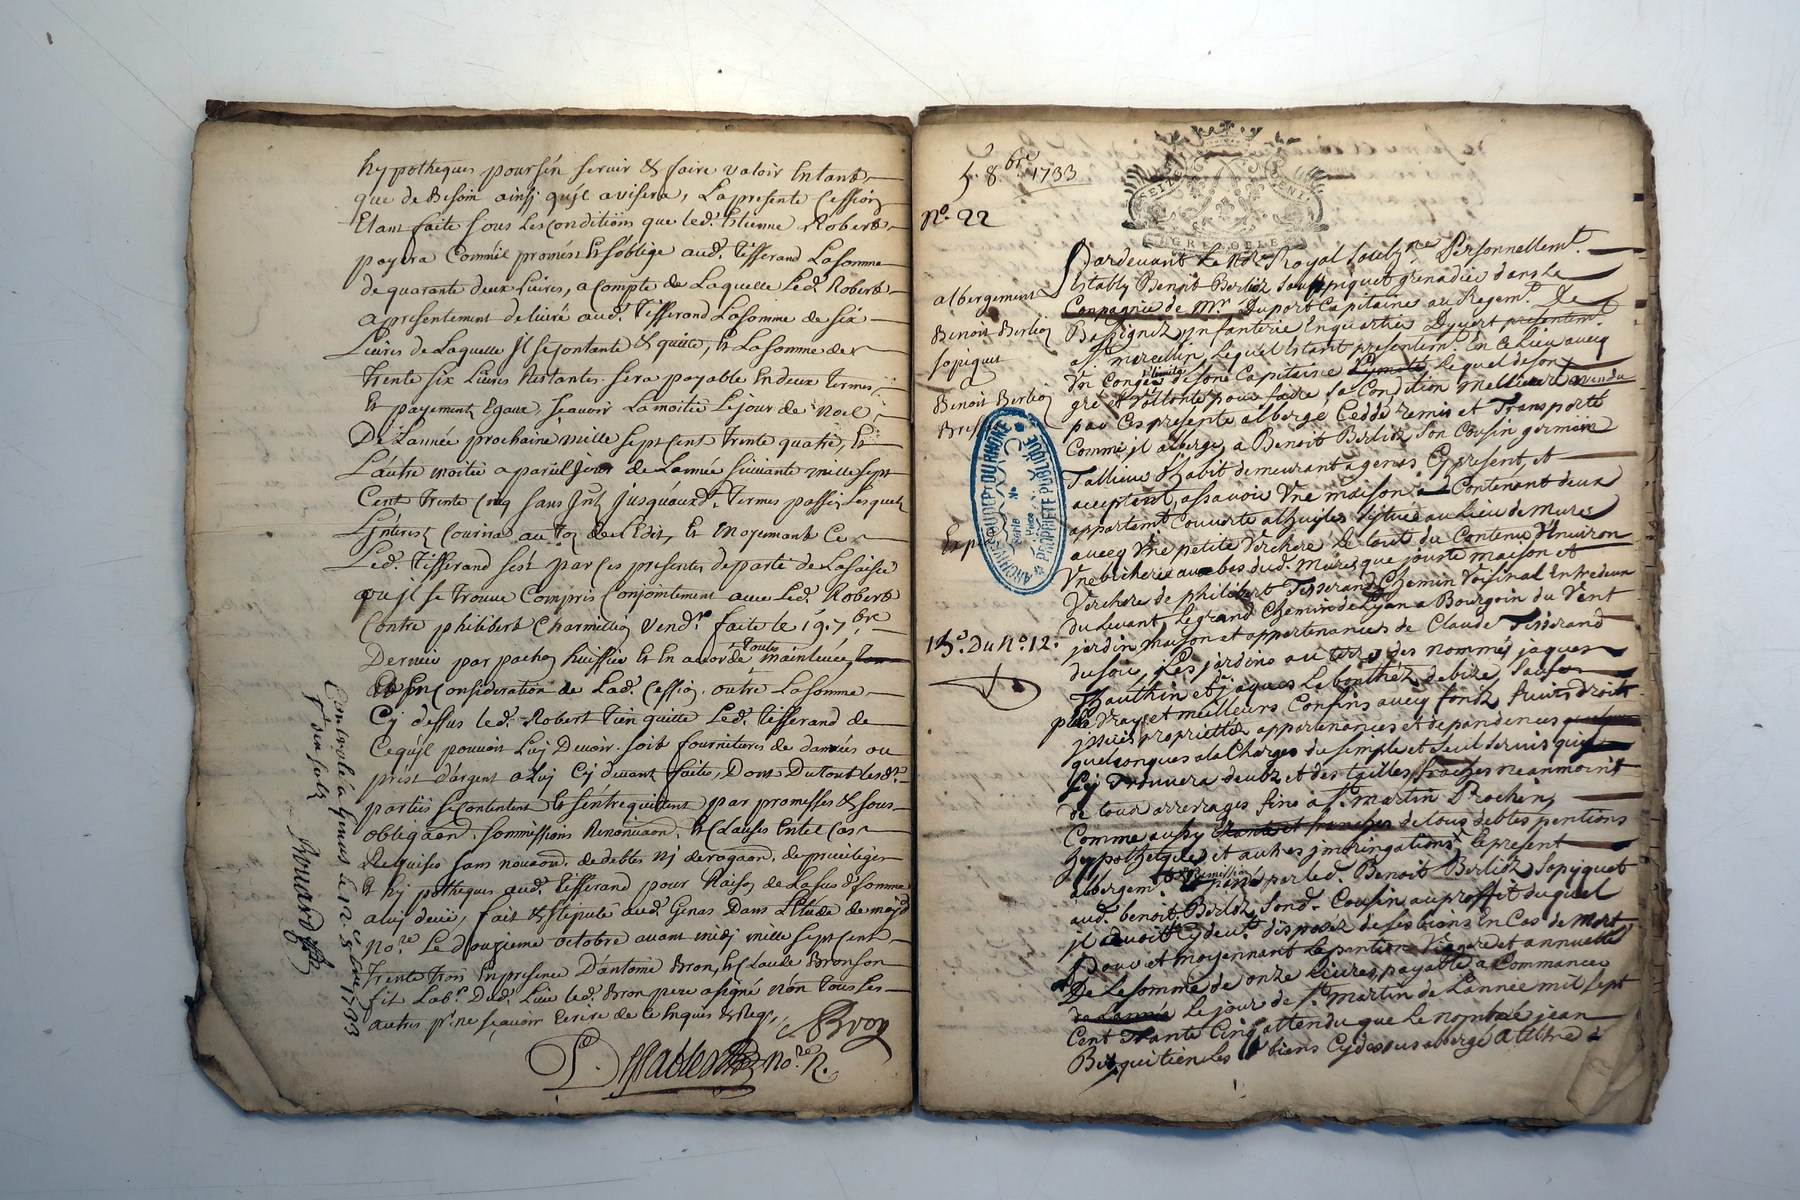 hypotheques pour s'en servir & faire valoir Entant
que de Besoin ainsy qu'jl avisera, La presente Cession
Etant faite sous Les conditions que led. Etienne Robert
payera Comme il promest Et s'oblige aud. Tisserand La somme
de quarante deux Livres, a compte de Laquelle Led. Robert
a presentement delivré aud. Tisserand La somme de six
Livres de Laquelle Jl se contante & quitte, Et La somme de
Trente six Livres Restantes sera payable En deux termes
Et payement Egaux, sçavoir La moitié Le jour de Noel
De L'année prochaine mille sept Cent Trente quatre, Et
L'autre moitié a pareil Jour de L'année suivante mille sept
Cent Trente Cinq sans Jnt. Jusqu'auxd. Termes passés Lesquels
Led. Tisserand s'est par Ces presentes departé de La saisie
qu'jl se Trouve Compris Conjointement avec Led. Robert
Contre philibert Charmillion Vend. faite le 19. 7bre
Dernier par pachon huissier Et En accorde toute mainlevée
Et En Consideration de Lad. Cession, outre La somme
Cy dessus led. Robert Tien quitte Led. Tisserand de
Ce qu'jl pouvoit Luy Devoir soit fournitures de danrées ou
prest d'argent a Luy Cy devant faites, Dont Du tout lesd.
parties se contentent Et s'entrequittent par promesses & sous
obligaon. sommissions Renonciaon. Et Clauses En tel Cas
Requises sans novaon. de debtes nj derogaon. de privileges
Et hypotheques aud. Tisserand pour Raison de La susd. somme
a luy deüe, fait & stipulé aud. Genas Dans L'Etude de moyd.
Nore. Le douzieme octobre avant midj mille sept Cent
Trente Trois En presence D'antoine Bron, Et Claude Bron son
fils Lab. Dud. Lieu led. Bron pere a signé Non Tous Les
autres pr. ne sçavoir Ecrire de Ce Enquis & Req.
Bron
Nore. R.
Controlé a Genas Le 12. 8bre 1733
5. 8bre 1733
No. 22
SEIZE DENI.
GRENOBLE
albergement
Benoit Berlioz
sopiquet
a
Benoit Berlioz
ARCHIVES DU DEPT DU RHONE
PROPRIETE PUBLIQUE
Serie
No
Piece
13e. Du No. 12.
Pardevant Le Nore Royal soubz.ne Personnellemt.
Estably Benoit Berlioz Sauppiquet grenadier dans Le
Compagnie de Mr. Duport Capitaine au Regemt. De
Bassigniz jnfanterie En quartier
st. marcellin, Lequel Estant presentem. En Ce Lieu avecq
Vn Congé limité de son Capitaine Lequel de son
gré et Vollonté pour faire sa Condition Mellieure a vendu
par Ces presente alberge Cedde remis et Transporte
Comme jl alberge, a Benoit Berlioz son Cousin germain
Tallieur d'habit demeurant a genas Cy present, et
aceptent, assavoir Vne maison Contenant deux
appartemt. Couverte a thuiles, situee au Lieu de Mures
avecq Vne petite Verchere Le tout du Contenu d'Environ
Vne bicherée au bas dud. Mures que jouste maison et
Verchere de philibert Tisserand Chemin Voisinal Entredeux
du Levant, Le grand Chemin de Lyon a Bourgoin du Vent
jardin maison et appartenances de Claude Tisserand
du soir, Les jardins au terre des nommés jaques
Thauthin et jaques Le bouthiez de bize, Sauf
plus Vray et meilleurs Confins avecq fondz fruits droits
jssues proprietés appartenances et dependences
quelconques a la Charges du simple et seul servis qui
sy Trouvera deubz et des tailles fraiches neanmoint
de tous arrerages fins a st. martin Prochin,
Comme aussy de tous debtes pentions
hypotheques et autres jmbringations Le present
albergem. passé par led. Benoit Berlioz Sopiquet
aud. benoit Berlioz, son d. Cousin au proffit duquel
jl avoit Cydevt. disposé de ses biens En Cas de Mort
Pour et moyennant La pention Viagere et annuelle
De La somme de onze Livres payable a Commancer
Le jour de st. Martin de L'année mil sept
Cent Trante Cinq attendu que Le nommé jean
Bit qui tien Les biens Cydessus albergé a titre